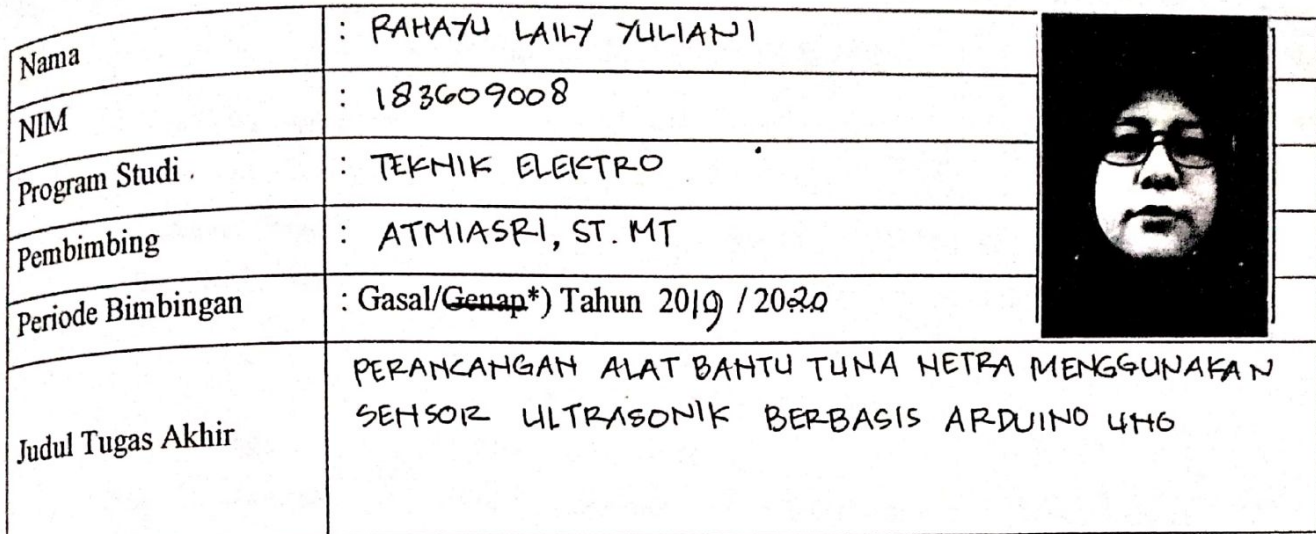 Nama : RAHAYU LAILY YULIANI
NIM : 183609008
Program Studi : TEKNIK ELEKTRO
Pembimbing : ATMIASRI, ST. MT
Periode Bimbingan : Gasal/Genap*) Tahun 2019 / 2020
Judul Tugas Akhir
PERANCANGAN ALAT BANTU TUNA NETRA MENGGUNAKAN
SENSOR ULTRASONIK BERBASIS ARDUINO UNO